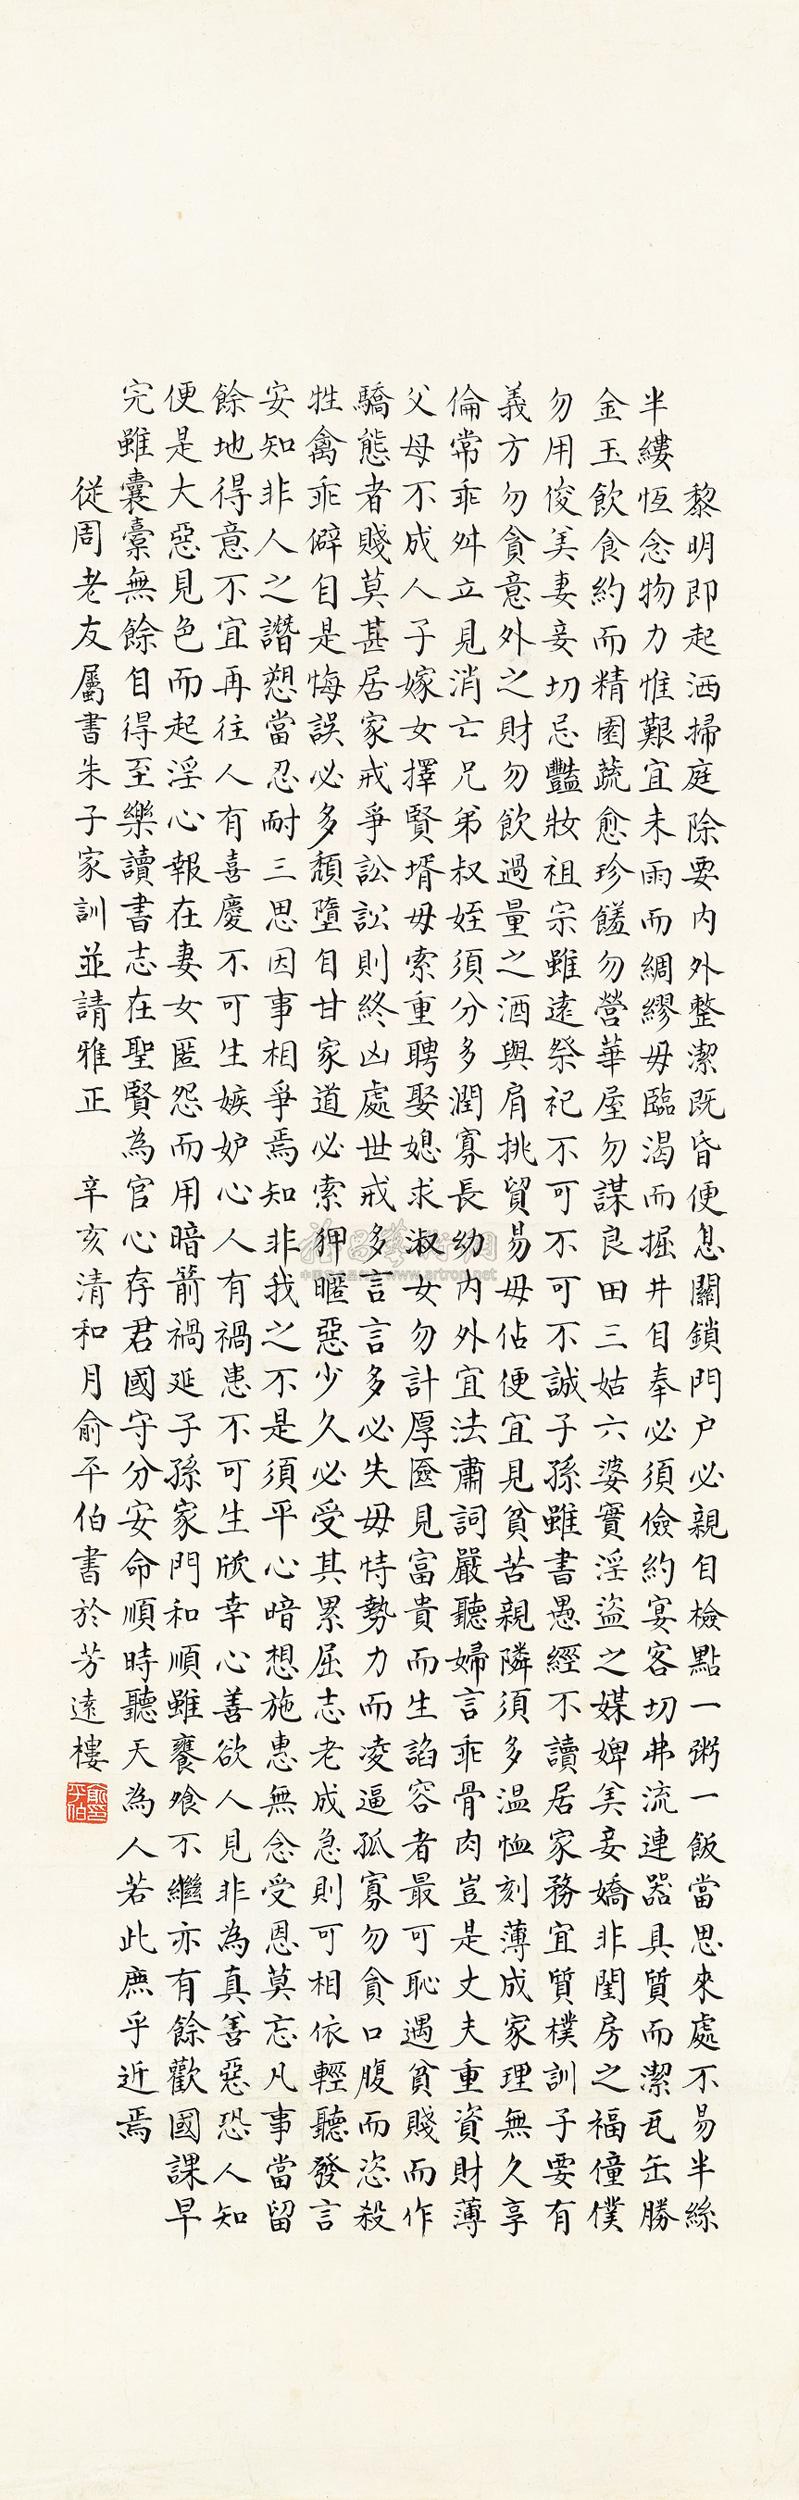 黎明即起洒掃庭除要内外整潔既昏便息關鎖門户必親自檢點一粥一飯當思來處不易半絲
半縷恆念物力惟艱宜未雨而綢繆毋臨渴而掘井自奉必須儉約宴客切弗流連器具質而潔瓦缶勝
金玉飲食約而精園蔬愈珍饈勿營華屋勿謀良田三姑六婆實淫盜之媒婢美妾嬌非閨房之福僮僕
勿用俊美妻妾切忌豔妝祖宗雖遠祭祀不可不可不誠子孫雖書愚經不讀居家務宜質樸訓子要有
義方勿貪意外之財勿飲過量之酒與肩挑貿易毋佔便宜見貧苦親隣須多温恤刻薄成家理無久享
倫常乖舛立見消亡兄弟叔姪須分多潤寡長幼内外宜法肅詞嚴聽婦言乖骨肉豈是丈夫重資財薄
父母不成人子嫁女擇賢壻毋索重聘娶媳求淑女勿計厚匳見富貴而生諂容者最可恥遇貧賤而作
驕態者賤莫甚居家戒爭訟訟則終凶處世戒多言言多必失毋恃勢力而凌逼孤寡勿貪口腹而恣殺
牲禽乖僻自是悔誤必多頽墮自甘家道必索狎暱惡少久必受其累屈志老成急則可相依輕聽發言
安知非人之譖愬當忍耐三思因事相爭焉知非我之不是須平心暗想施惠無念受恩莫忘凡事當留
餘地得意不宜再往人有喜慶不可生嫉妒心人有禍患不可生欣幸心善欲人見非為真善惡恐人知
便是大惡見色而起淫心報在妻女匿怨而用暗箭禍延子孫家門和順雖饔飧不繼亦有餘歡國課早
完雖囊橐無餘自得至樂讀書志在聖賢為官心存君國守分安命順時聽天為人若此庶乎近焉
從周老友屬書朱子家訓並請雅正 辛亥清和月俞平伯書於芳遠樓
俞平伯印